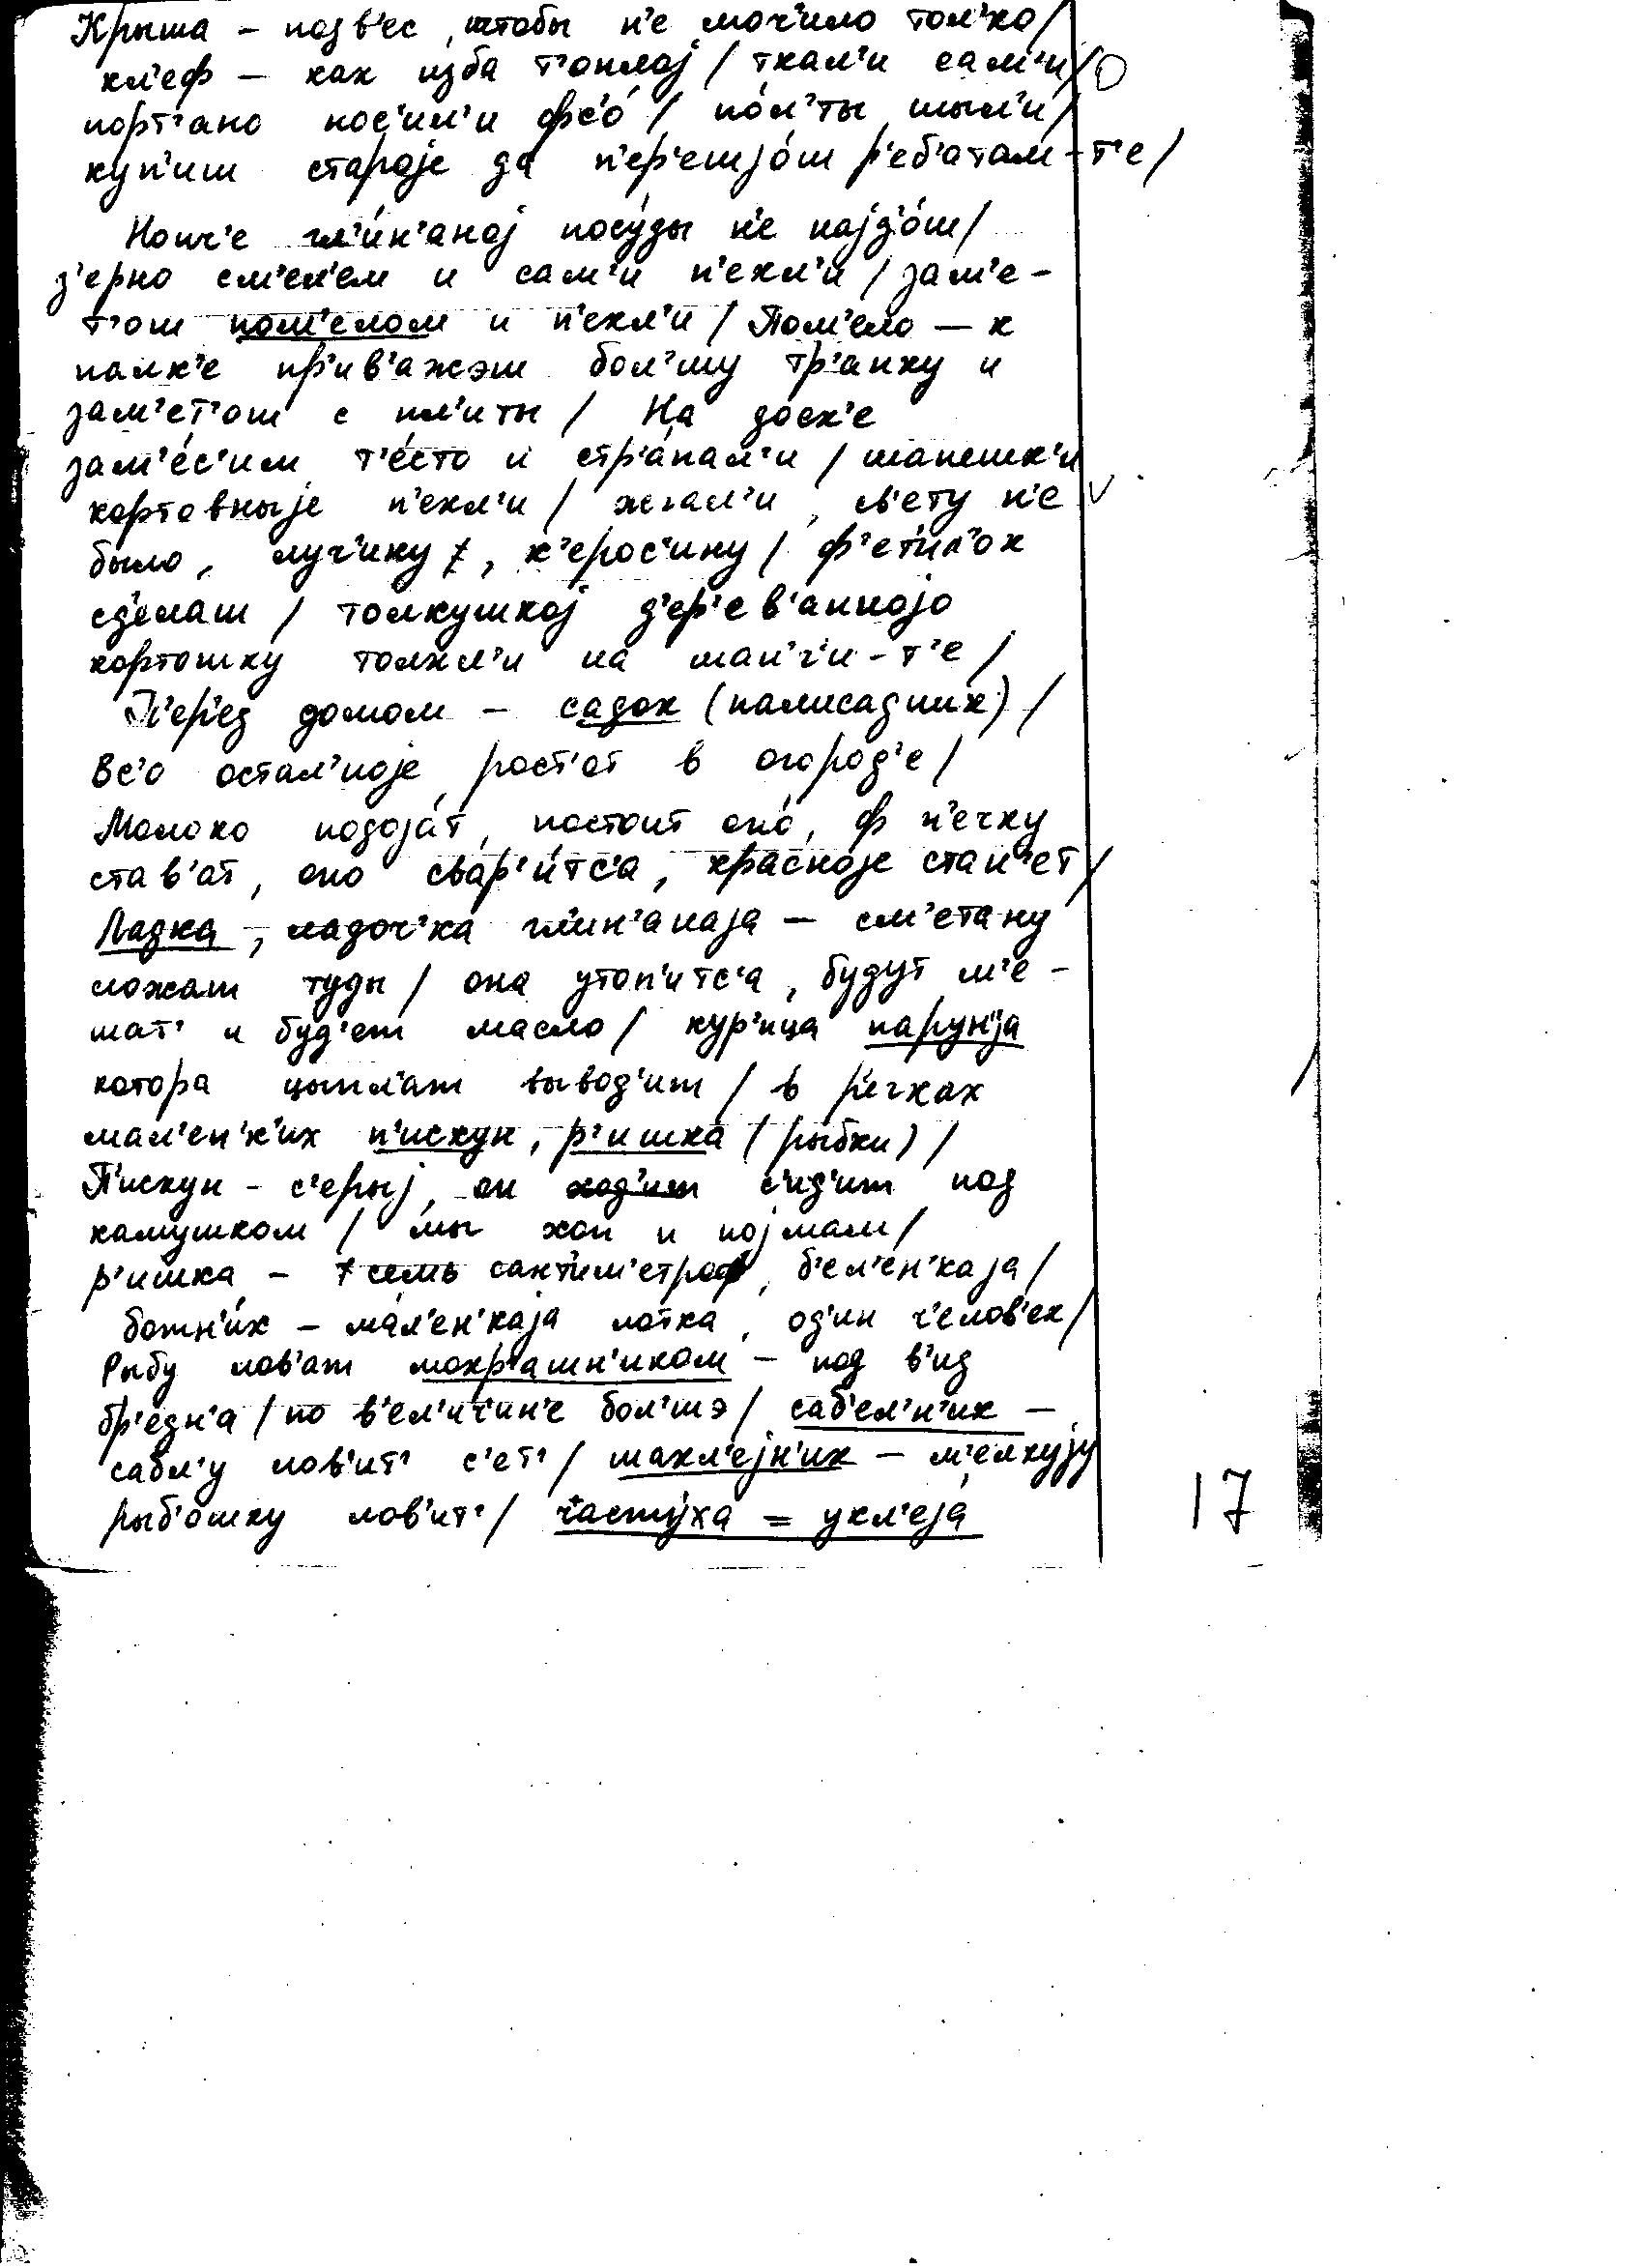 Крыша – подв'ес, штобы н'е моч'ило тол'ко/
кл'еф – как изба т'оплај / ткал'и сам'и/
порт'ано нос'ил'и фс'о́ / по́л'ты шыл'и/
куп'иш староје да п'ер'ешjо́ш р'еб'атам-т'е/
Нонч'е гл'и́н'анај посу́ды н'е најд'о́ш/
з'ерно см'ел'ем и сам'и п'екл'и / зам'е-
т'ош пом'елом и п'екл'и / Пом'ело – к
палк'е пр'ив'ажэш бол'шу тр'апку и
зам'ет'ош с пл'иты / На доск'е
зам'е́с'им т'е́сто и стр'а́пал'и / шанешк'и
картовныје п'екл'и / жгал'и, св'ету н'е
было, луч'ину, к'ерос'ину / ф'етил'ок
сд'елаш / толкушкој д'ер'ев'анноjо
картошку толкл'и на шан'г'и-т'е /
П'ер'ед домом – садок (палисадник) /
Вс'о остал'ноjе рост'от в огород'е /
Молоко подоjа́т, постоит оно́, ф п'ечку
став'ат, оно свар'и́тс'а, красноjе стан'ет/
Ладка, ладоч'ка глин'анаjа – см'етану
ложат туды / она утоп'итс'а, будут м'е-
шат' и буд'ет масло / кур'ица парун'jа
котора цыпл'ат вывод'ит / в р'ечках
мал'ен'к'их п'искун, р'ишка (рыбки) /
П'искун – с'ерыj, он ход'ит с'ид'ит под
камушком / мы хоп и поjмам /
р'ишка – 7 семь сантим'етроф, б'ел'ен'каjа /
ботн'и́к – мал'ен'каjа лотка, од'ин ч'елов'ек/
Рыбу лов'ат мокр'ашн'иком – под в'ид
бр'едн'а / по в'ел'ич'ин'е бол'шэ / саб'ел'н'ик –
сабл'у лов'ит' с'ет' / махл'еjн'ик – м'елкуjу
рыб'ошку лов'ит' / ч'асту́ха = укл'еjа
17